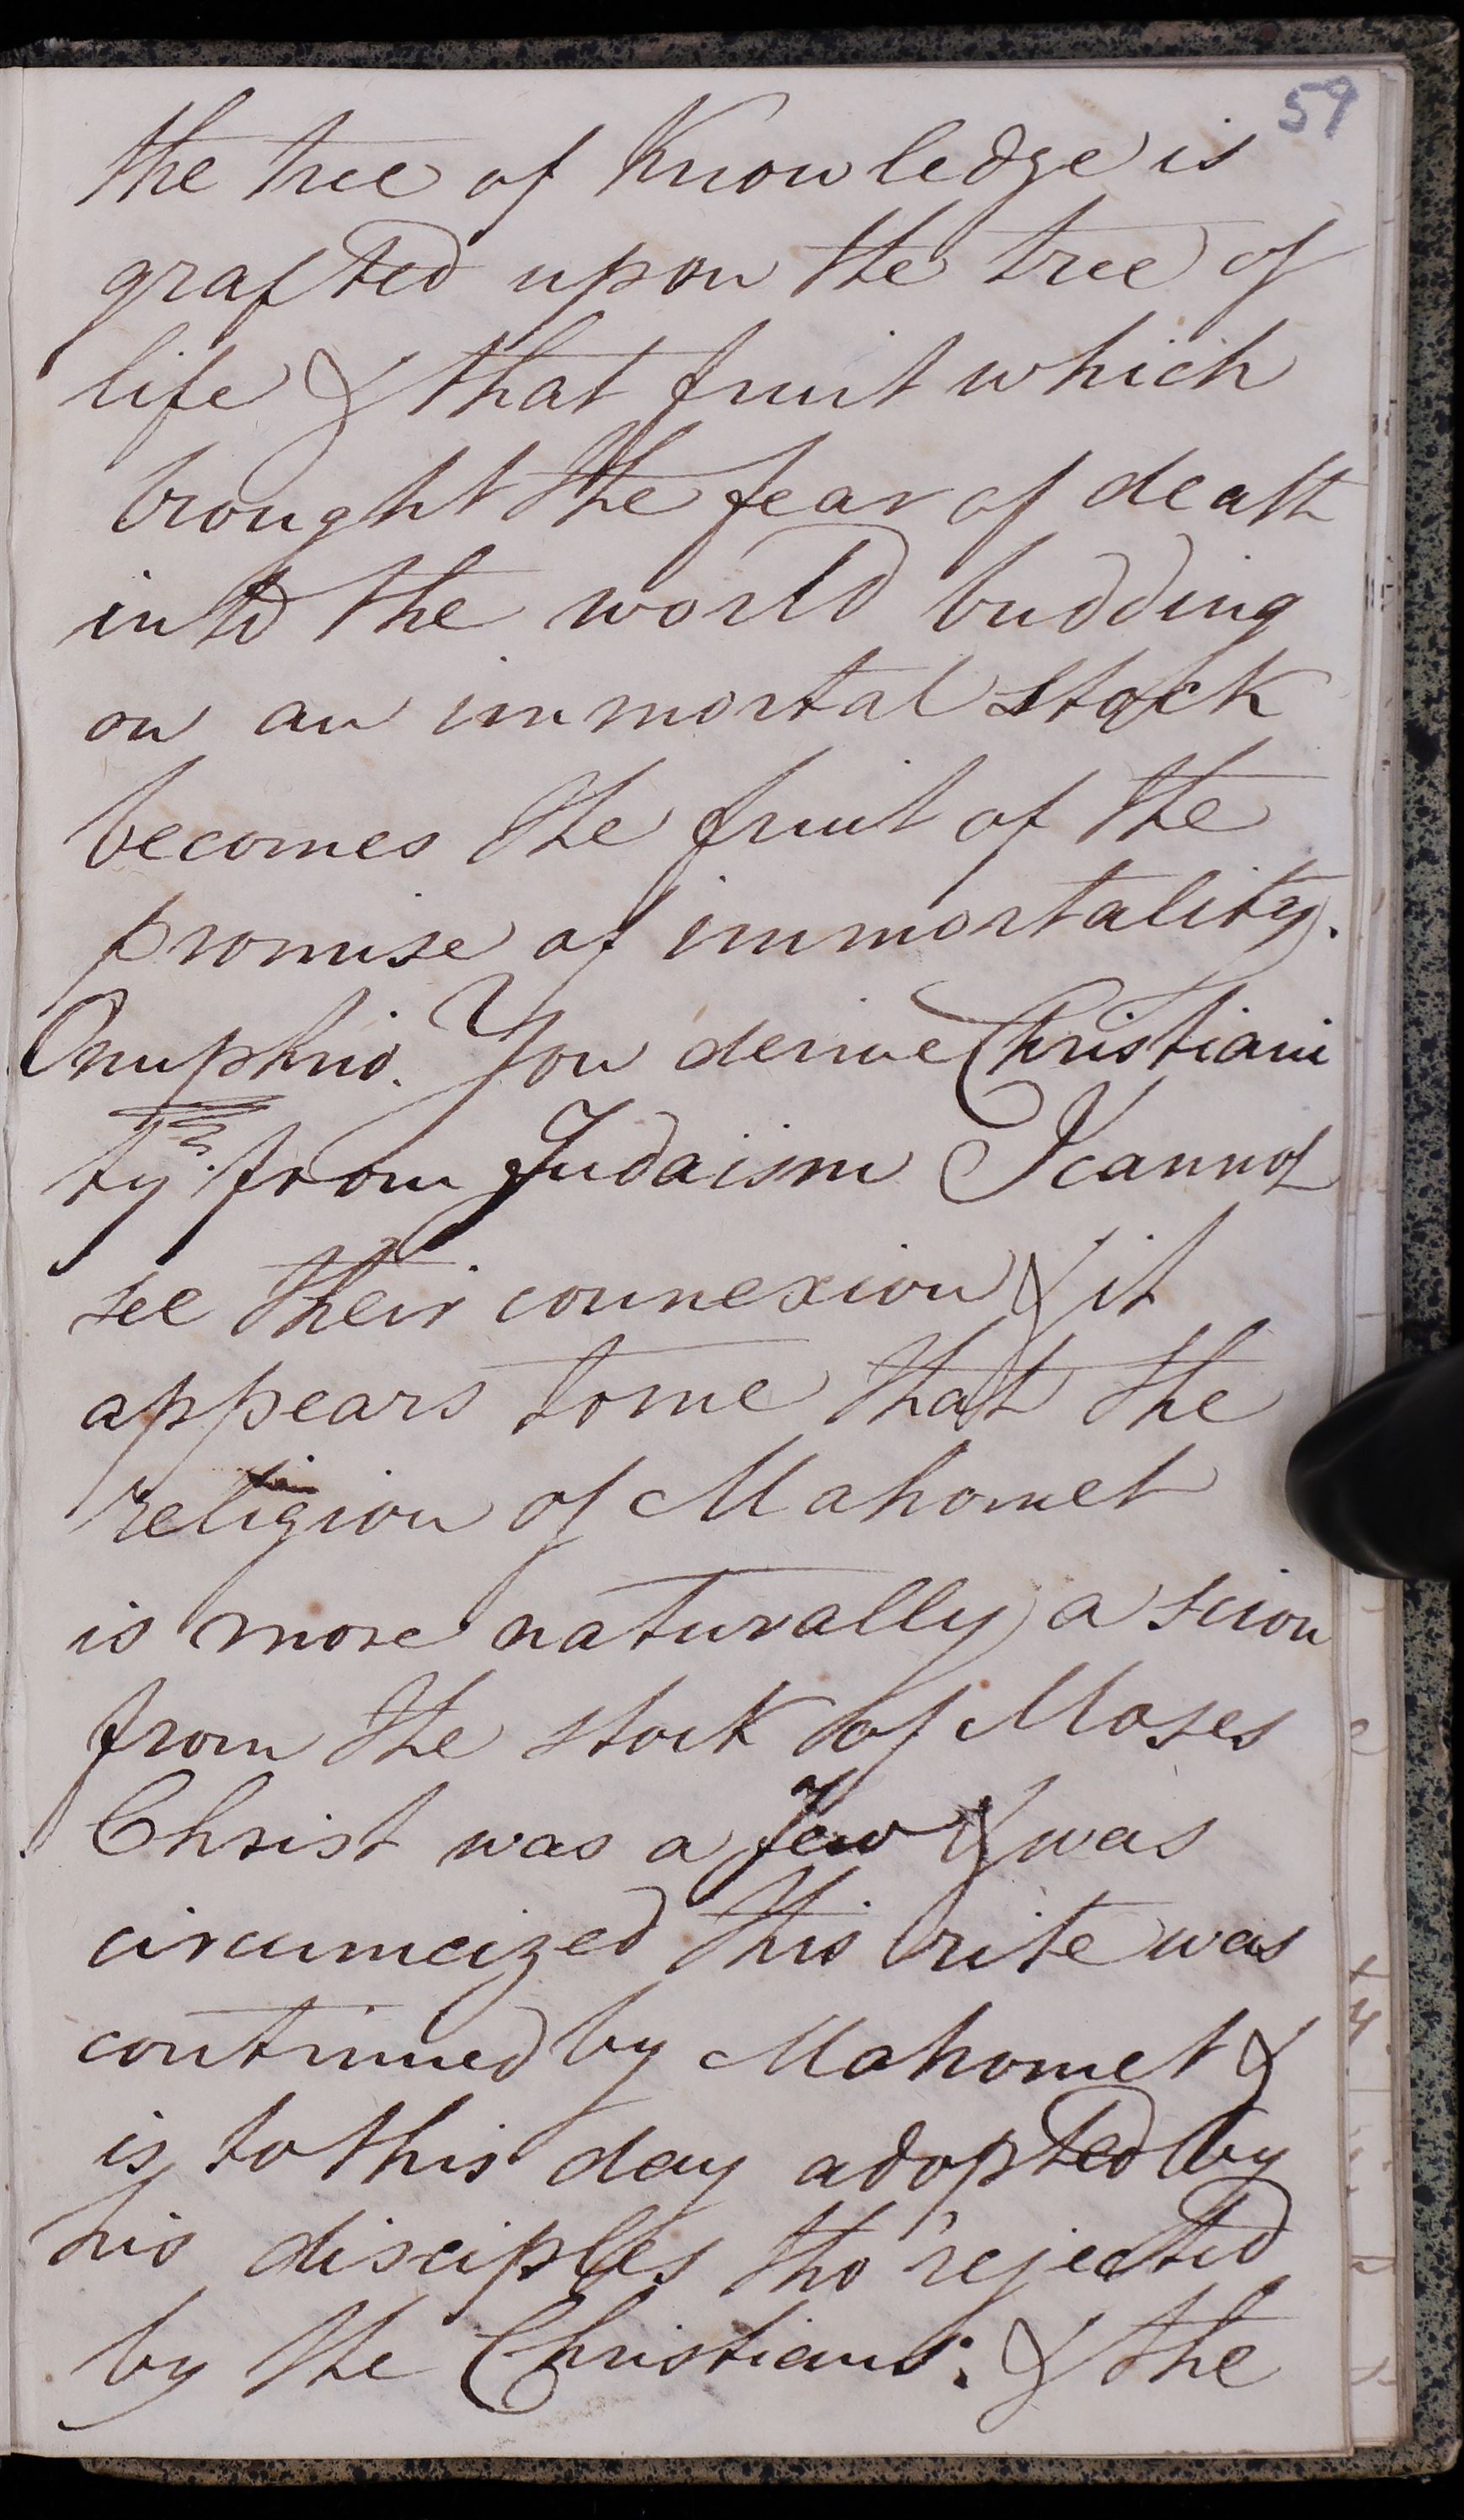 59
the tree of Knowledge is
grafted upon the tree of
life & that fruit which
brought the fear of death
into the world budding
on an immortal stock
becomes the fruit of the
promise of immortality.
Onuphrio. You derive Christiani
ty from Judaism I cannot
see their connexion & it
appears to me that the
religion of Mahomet
is more naturally a scion
from the stock of Moses
Christ was a Jew & was
circumcized this rite was
continued by Mahomet &
is to this day adopted by
his disciples tho' rejected
by the Christians: & the